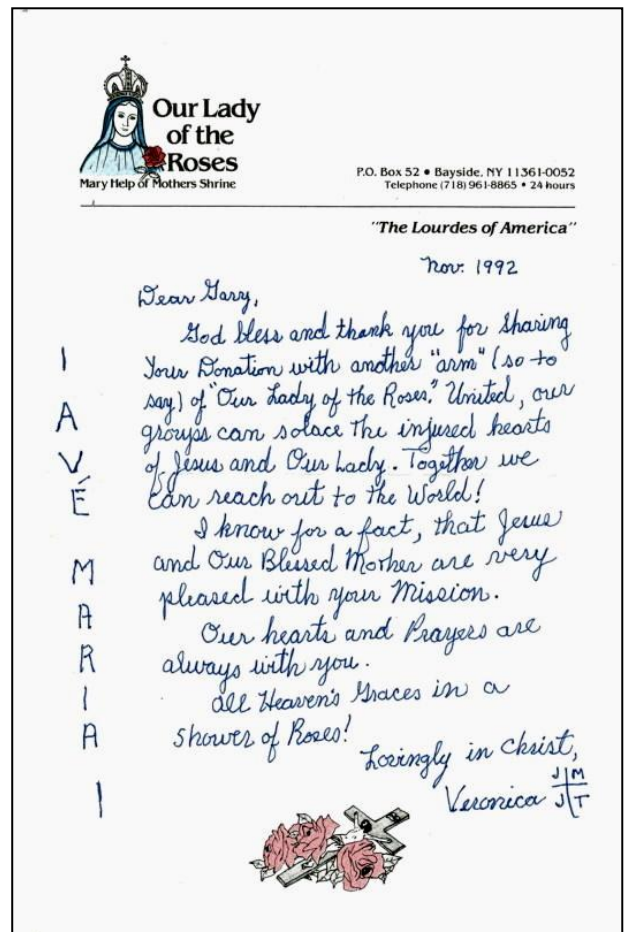 Our Lady
of the
Roses
Mary Help of Mothers Shrine
P.O. Box 52 • Bayside, NY 11361-0052
Telephone (718) 961-8865 • 24 hours
"The Lourdes of America"
Nov. 1992
Dear Gary,
God bless and thank you for Sharing
Your Donation with another "arm" (so to
say) of "Our Lady of the Roses." United, our
groups can solace the injured hearts
of Jesus and Our Lady. Together we
Can reach out to the World!
I know for a fact, that Jesus
and Our Blessed Mother are very
pleased with your Mission.
Our hearts and Prayers are
always with you.
All Heaven's Graces in a
Shower of Roses!
Lovingly in Christ,
Veronica
J M
J T
I
A
V
É
M
A
R
I
A
I